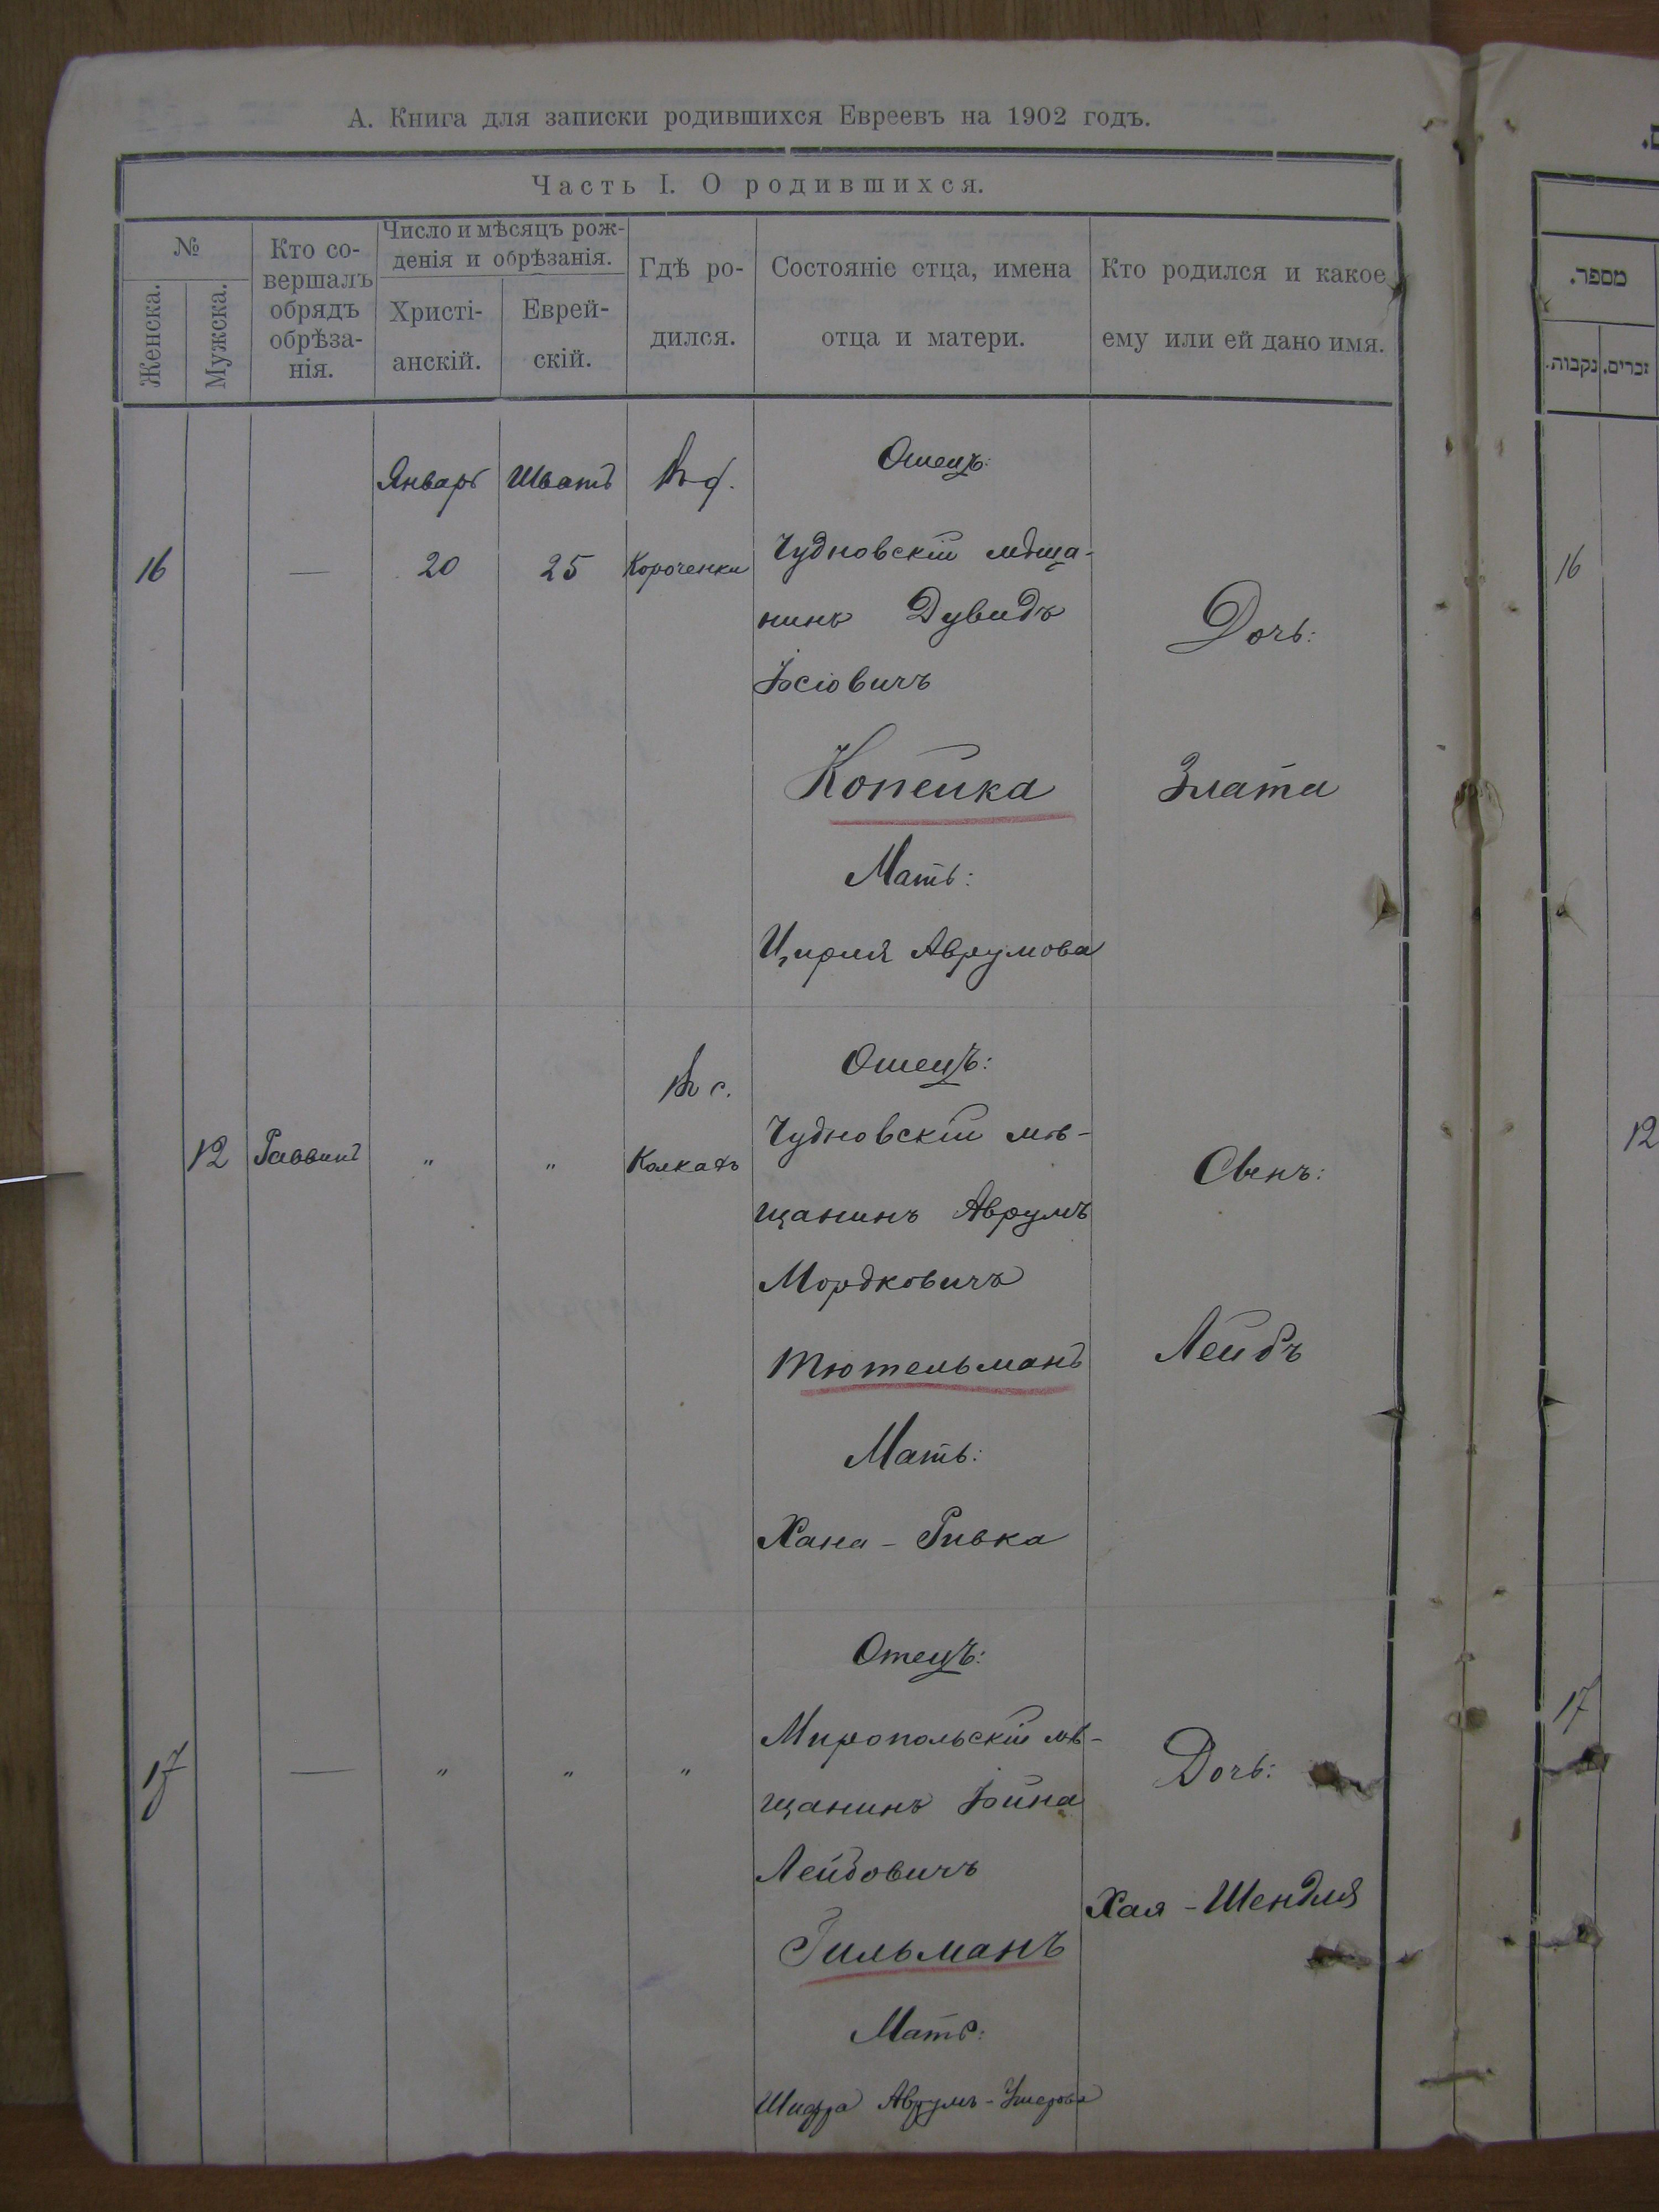 А. Книга для записки родившихся Евреевъ на 1902 годъ.
Часть I. О родившихся.
№
Женска.
Мужска.
Кто со-
вершалъ
обрядъ
обрѣза-
нія.
Число и мѣсяцъ рож-
денія и обрѣзанія.
Христі-
анскій.
Еврей-
скій.
Гдѣ ро-
дился.
Состояніе отца, имена
отца и матери.
Кто родился и какое
ему или ей дано имя.
16
—
Январь
20
Шватъ
25
Короченки
Отецъ:
Чудновскій мѣща-
нинъ Дувидъ
Іосіовичъ
Копейка
Мать:
Ципря Аврумова
Дочь:
Злата
12
Раввинъ
"
"
Въ с.
Колкахъ
Отецъ:
Чудновскій мѣ-
щанинъ Аврумъ
Мордковичъ
Тютельманъ
Мать:
Хана - Ривка
Сынъ:
Лейбъ
17
—
"
"
"
Отецъ:
Миропольскій мѣ-
щанинъ Іойна
Лейбовичъ
Гильманъ
Мать:
Шифра Аврумъ-Ушерова
Дочь:
Хая - Шендля
מספר.
נקבות.
זכרים.
16
12
17